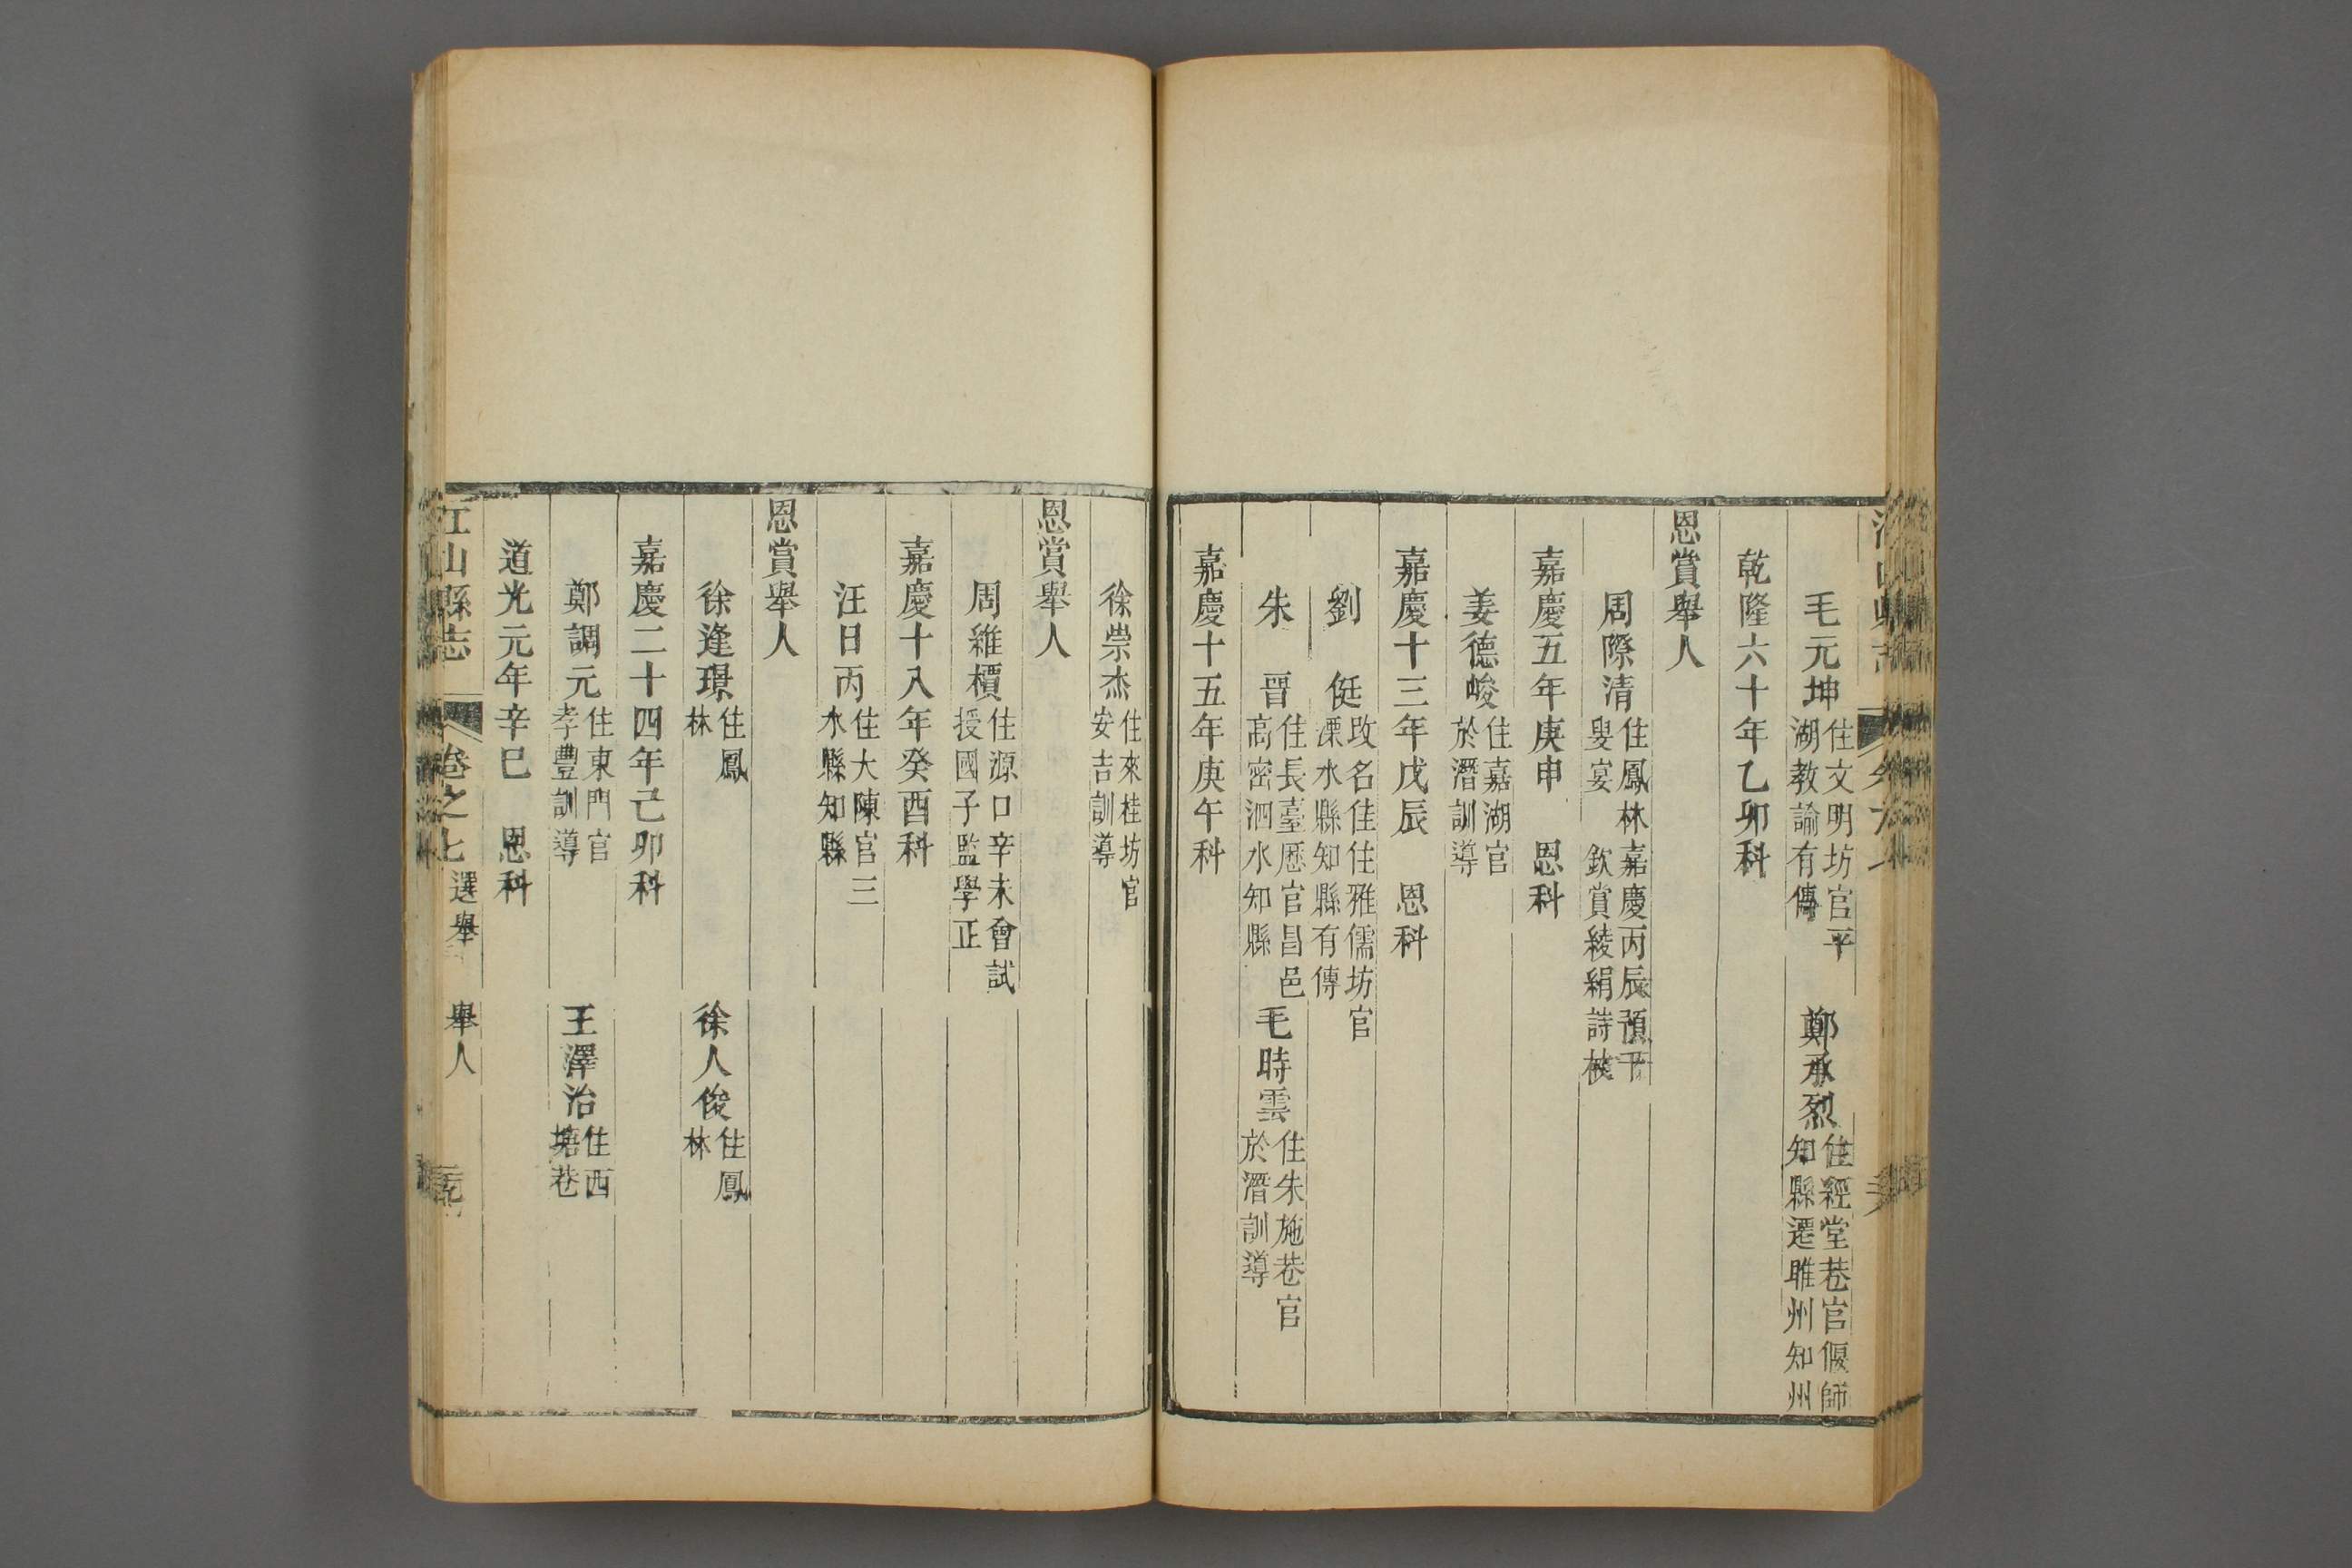 毛元坤住文明坊官平湖教諭有傳 鄭承烈住經堂巷官偃師知縣遷睢州知州
乾隆六十年乙卯科
恩賞舉人
周際清住鳳林嘉慶丙辰預千叟宴 欽賞綾絹詩杖
嘉慶五年庚申 恩科
姜德峻住嘉湖官於潛訓導
嘉慶十三年戊辰 恩科
劉 侹改名佳住雅儒坊官溧水縣知縣有傳
朱 晉住長臺歷官昌邑高密泗水知縣 毛時雲住朱施巷官於潛訓導
嘉慶十五年庚午科
徐崇杰住來桂坊官安吉訓導
恩賞舉人
周維櫝住源口辛未會試授國子監學正
嘉慶十八年癸酉科
汪日丙住大陳官三水縣知縣
恩賞舉人
徐逢璟住鳳林 徐人俊住鳳林
嘉慶二十四年己卯科
鄭調元住東門官孝豐訓導 王澤治住西塘巷
道光元年辛巳 恩科
江山縣志 卷之七 選舉 舉人